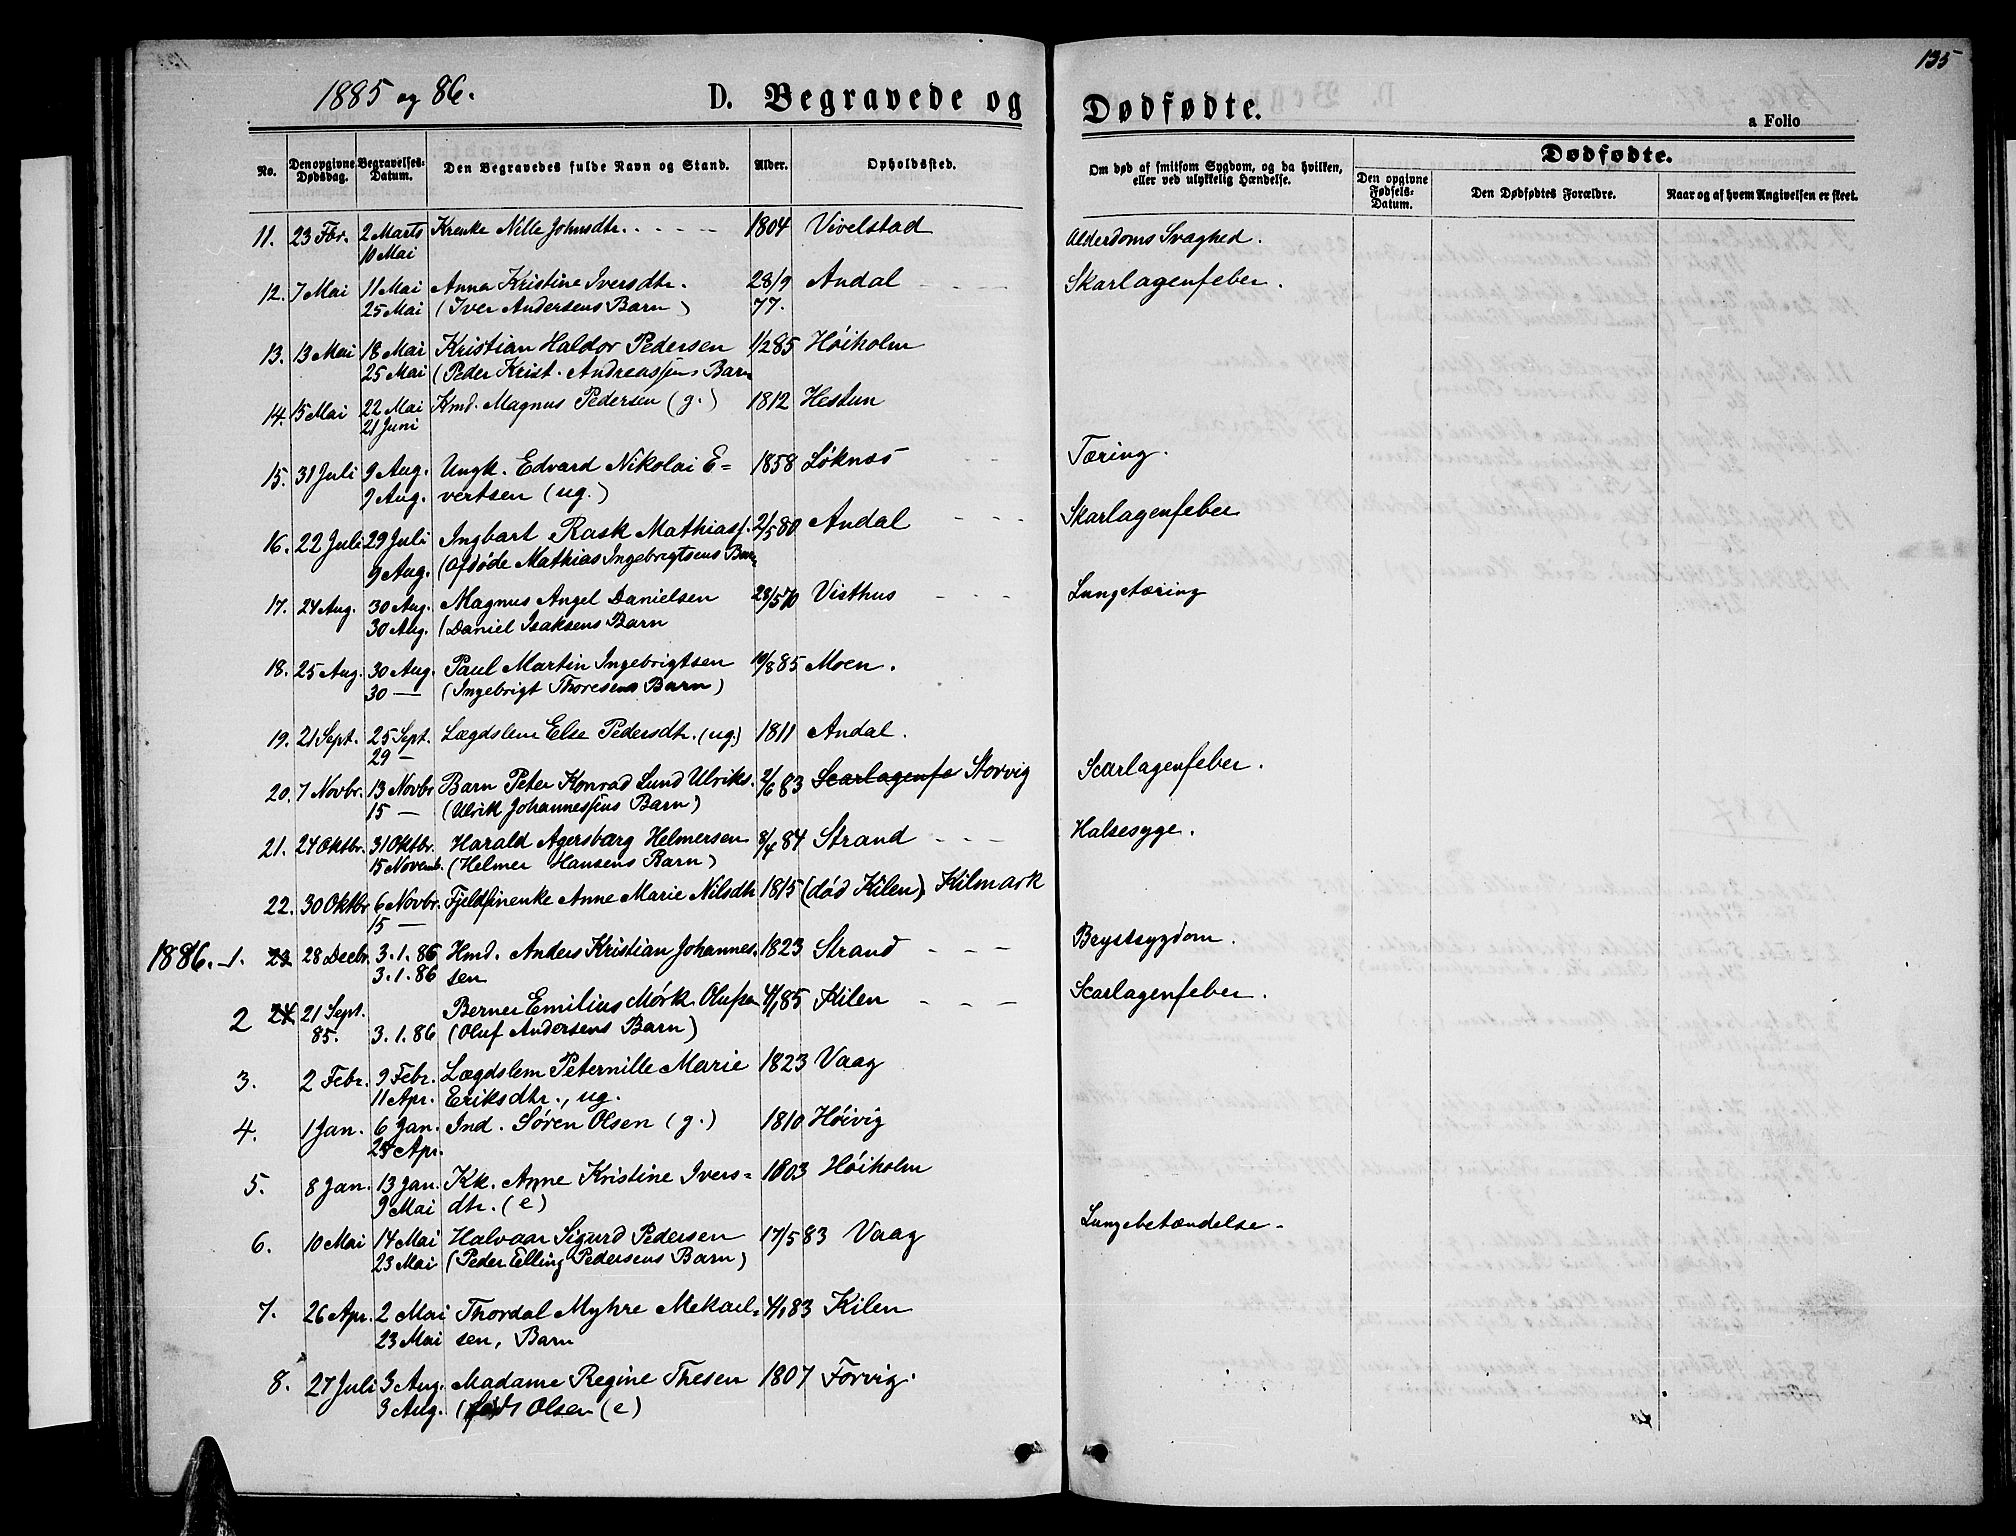 135
1885 og 86.
D. Begravede og Dødfødte.
a Folio
No.
Den opgivne Dødsdag.
Begravelses-Datum.
Den Begravedes fulde Navn og Stand.
Alder.
Opholdssted.
Om død af smitsom Sygdom, og da hvilken, eller ved ulykkelig Hændelse.
Dødfødte.
Den opgivne Fødsels-Datum.
Den Dødfødtes Forældre.
Naar og af hvem Angivelsen er skeet.
11. 23 Fbr. 2 Marts Krenke Nille Johnsdtr. 1804 Vivelstad Alderdoms Svaghed.
10 Mai
12. 7 Mai 11 Mai Anna Kristine Iversdtr. 28/9 Andal Skarlagenfeber.
25 Mai (Iver Andersens Barn) 77.
13. 13 Mai 18 Mai Kristian Haldor Pedersen 1/2 85 Høiholm
25 Mai (Peder Krist. Andreassens Barn
14. 15 Mai 22 Mai Kmd. Magnus Pedersen (g.) 1812 Hestun
21 Juni
15. 31 Juli 9 Aug. Ungk. Edvard Nikolai E= 1858 Løknæs Tæring.
9 Aug. vertsen (ug.)
16. 22 Juli 29 Juli Ingbart Rask Mathiass. 2/5 80 Andal Skarlagenfeber
9 Aug. (Afdøde Mathias Ingebrigtsens Barn
17. 24 Aug. 30 Aug. Magnus Angel Danielsen 28/5 70 Visthus Lungetæring
30 Aug. (Daniel Isaksens Barn
18. 25 Aug. 30 Aug. Paul Martin Ingebrigtsen 10/8 85 Moen.
30 — (Ingebrigt Thoresens Barn)
19. 21 Sept. 25 Sept. Lægdslem Else Pedersdtr. (ug.) 1811 Andal.
29 —
20. 7 Novbr. 13 Novbr Barn Peter Konrad Lund Ulriks. 2/6 83 Scarlagenfe Storvig Scarlagenfeber.
15 — (Ulrik Johannessens Barn)
21. 24 Oktbr. 31 Oktbr. Harald Agersborg Helmersen 8/4 84 Strand Halsesyge.
15 Novemb. (Helmer Hansens Barn)
22. 30 Oktbr 6 Novbr. Fjeldfinenke Anne Marie Nilsdtr 1815 (død Kilen) Kilmark
15 —
1886. 1. 23 28 Decbr. 3.1.86 Hmd. Anders Kristian Johannes- 1823 Strand Brystsygdom.
3.1.86 sen
2 24 21 Sept. Berner Emilius Mørk Olufsen 4/1 85 Kilen Scarlagenfeber.
85. 3.1.86 (Oluf Andersens Barn)
3. 2 Febr. 9 Febr. Lægdslem Peternille Marie 1823 Vaag
11 Apr. Eriksdtr., ug.
4. 1 Jan. 6 Jan. Ind. Søren Olsen (g.) 1810 Høivig
Apr.
5. 8 Jan. 13 Jan. Kk. Anne Kristine Ivers= 1803 Høiholm
9 Mai dtr. (e)
6. 10 Mai 14 Mai Halvaar Sigurd Pedersen 17/5 83 Vaag Lungebetændelse
23 Mai (Peder Elling Pedersens Barn)
7. 26 Apr. 2 Mai Thordal Myhre Mekael= 4/1 83 Kilen
23 Mai sen, Barn
8. 27 Juli 3 Aug. Madame Regine Thesen 1807 Forvig.
3 Aug. (født Olsen (e)